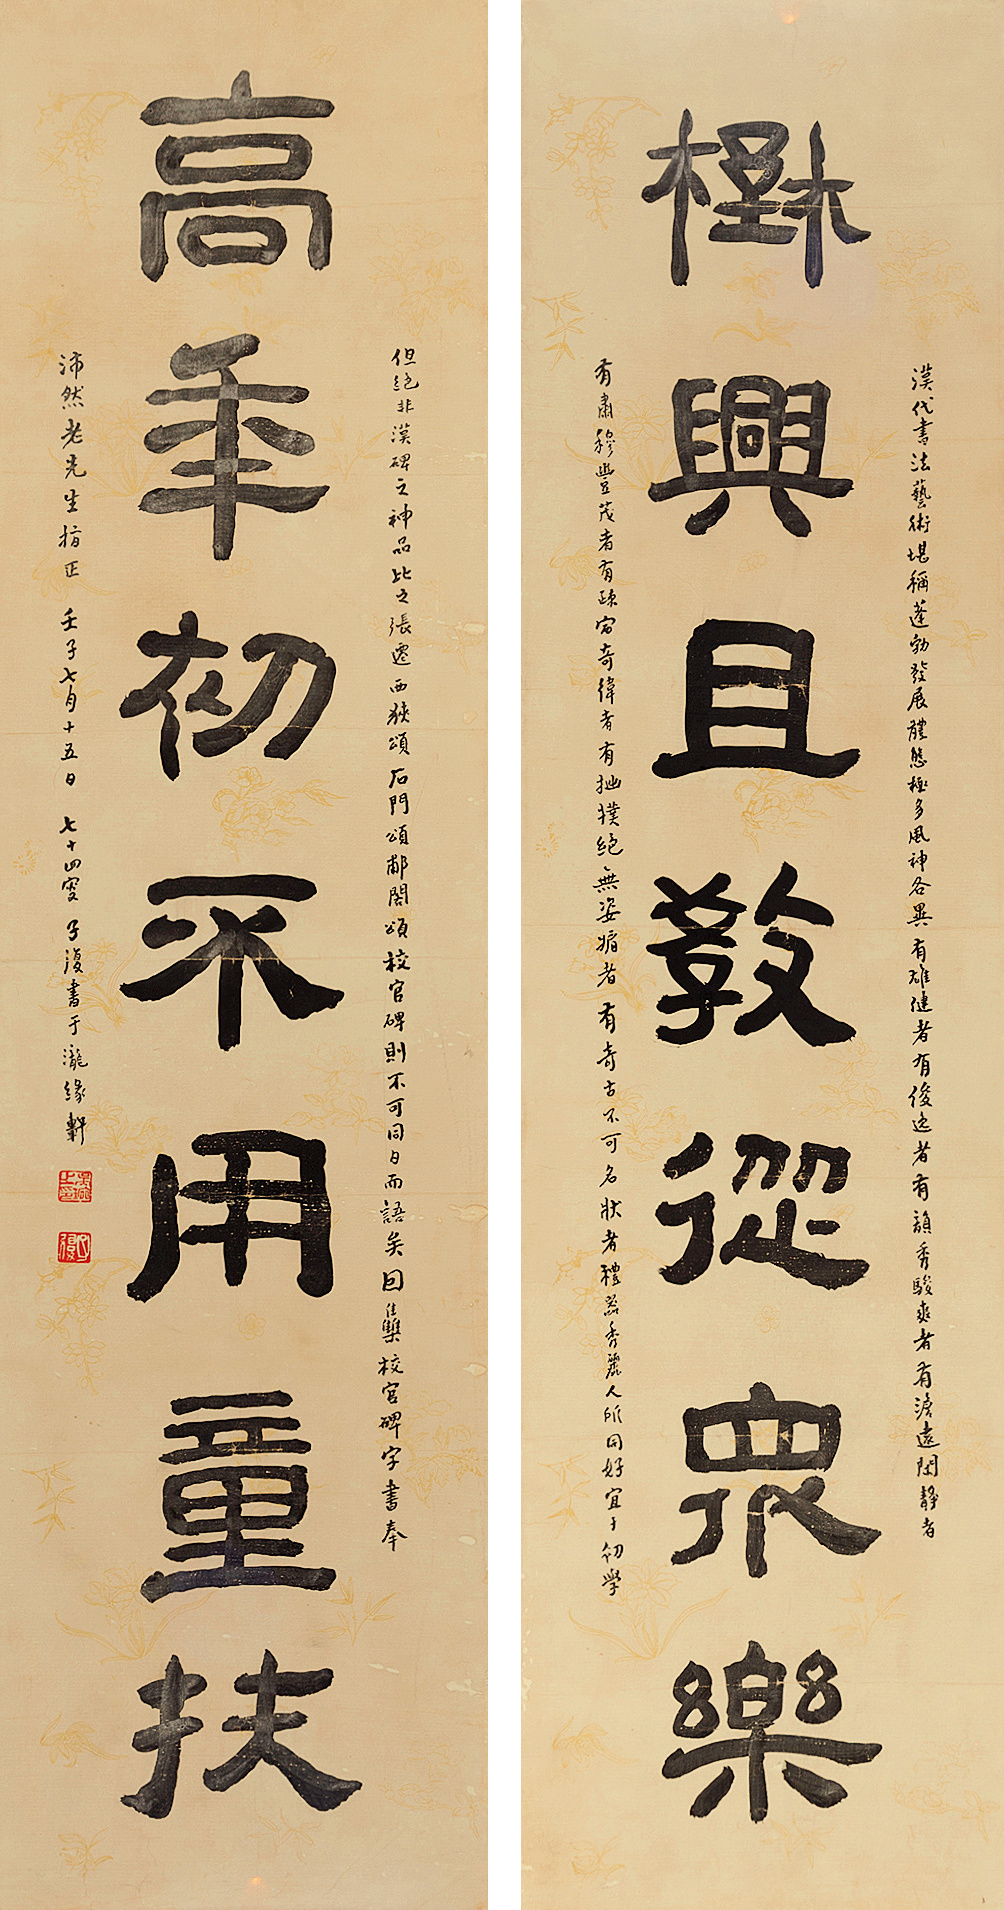 壄興且教從眾樂
高年初不用童扶
漢代書法藝術堪稱蓬勃發展體態極多風神各異有雄健者有俊逸者有韻秀駿爽者有澹遠閑靜者
有肅穆豐茂者有疎宕奇偉者有拙樸絕無姿媚者有奇古不可名狀者禮器秀麗人所同好宜于初學
但絕非漢碑之神品比之張遷西狹頌石門頌郙閣頌校官碑則不可同日而語矣回集校官碑字書奉
沛然老先生指正 壬子七月十五日 七十四叟子復書于瀧緣軒
子復